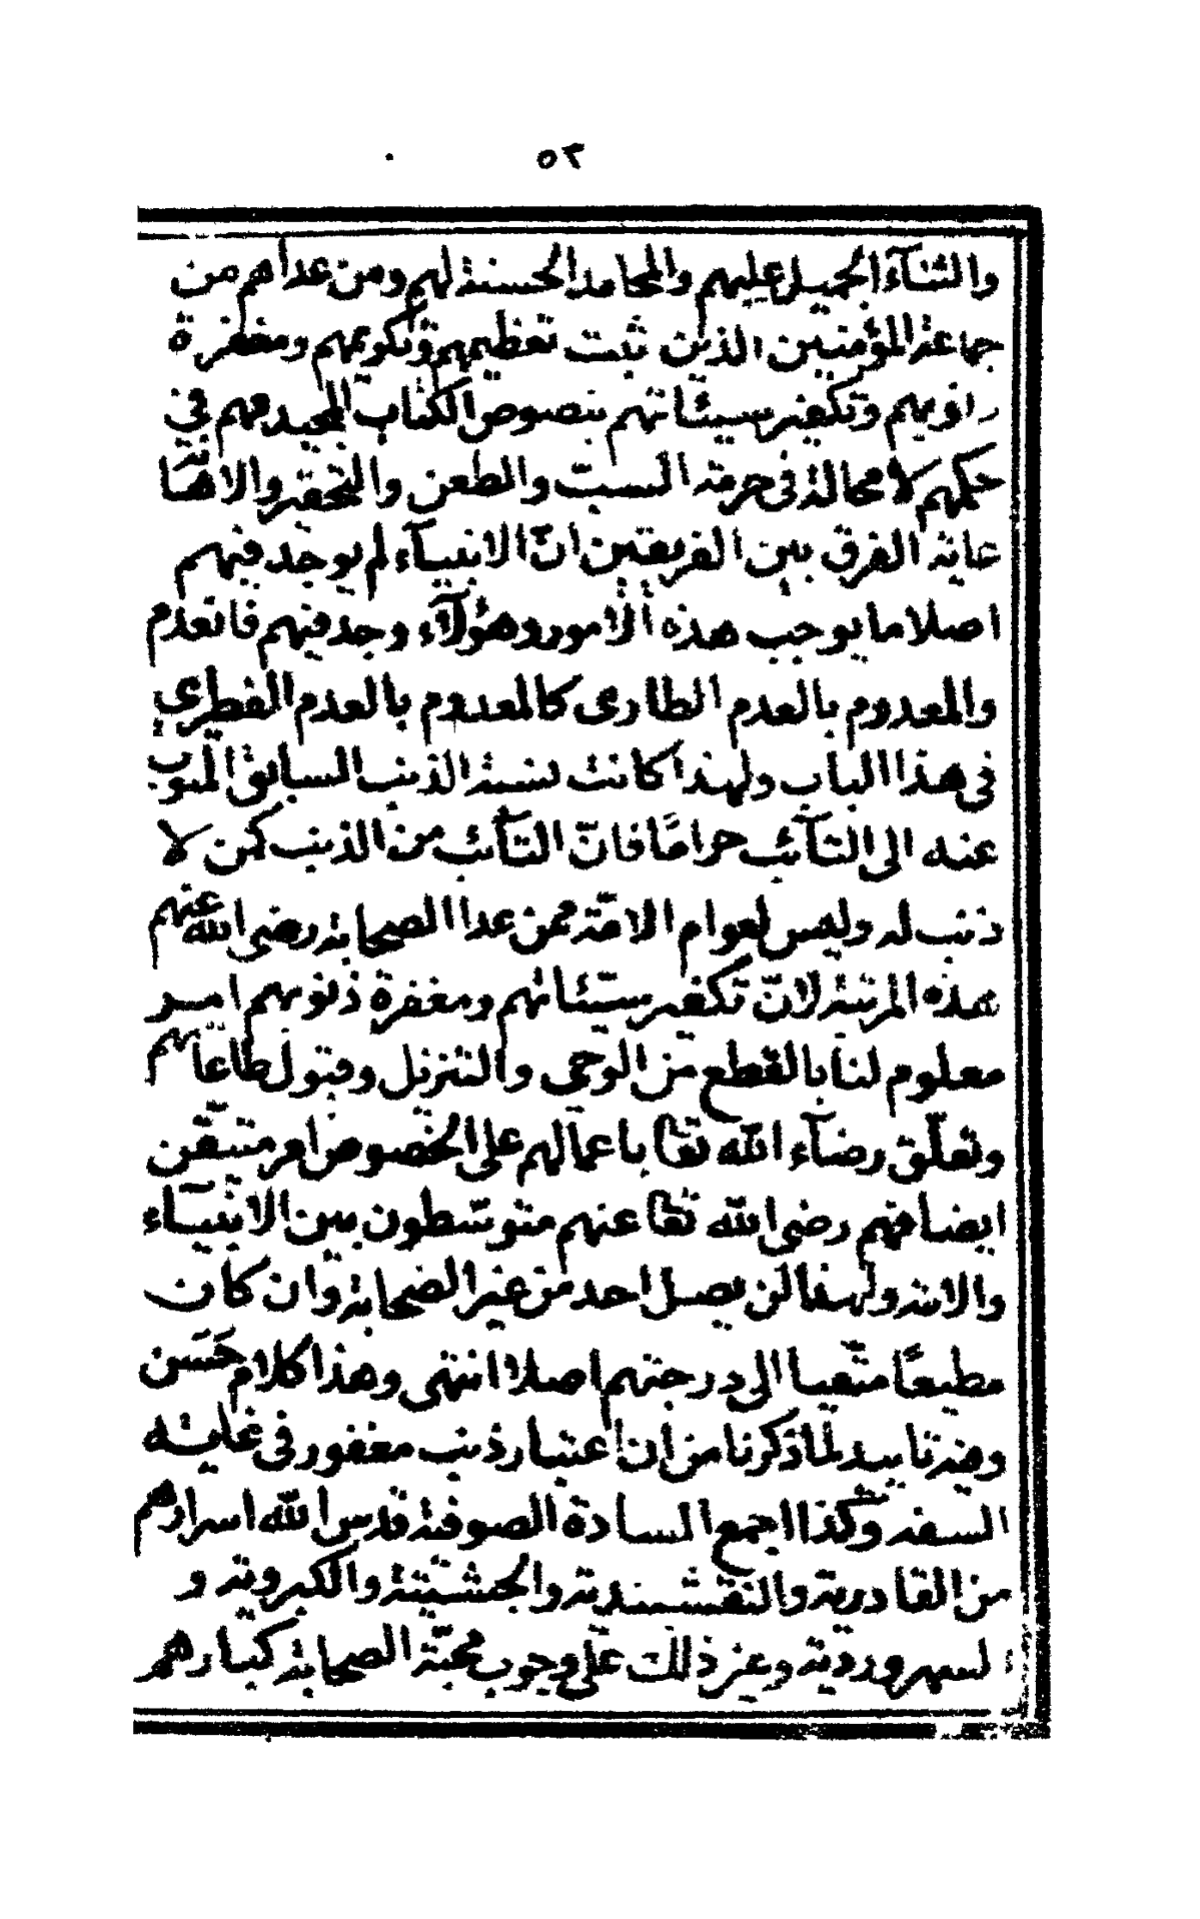 ٥٢
والثناء الجميل عليهم والمحامد الحسنة لهم ومن عداهم من
جماعة المؤمنين الذين ثبت تعظيمهم وتكريمهم ومغفرة
ذنوبهم وتكفير سيئاتهم بنصوص الكتاب المجيد فهم في
حكمهم لا محالة في حرمة السبّ والطعن والتحقير والاهانة
غاية الفرق بين الفريقين انّ الانبيآء لم يوجد فيهم
اصلا ما يوجب هذه الامور وهؤلآء وجد فيهم فانعدم
والمعدوم بالعدم الطارى كالمعدوم بالعدم الفطرى
في هذا الباب ولهذا كانت نسبة الذنب السابق المتوب
عنه الى التآئب حرامًا فانّ التآئب من الذنب كمن لا
ذنب له وليس لعوام الامّة ممن عدا الصحابة رضى الله عنهم
هذه المرتبة لانّ تكفير سيّئاتهم ومغفرة ذنوبهم امر
معلوم لنا بالقطع من الوحى والتنزيل وقبول طاعاتهم
وتعلّق رضآء الله تعا باعمالهم على الخصوص امر متيقّن
ايضا فهم رضى الله تعا عنهم متوسّطون بين الانبيآء
والامة ولهذا لن يصل احد من غير الصحابة وان كان
مطيعًا متّقيا الى درجتهم اصلا انتهى وهذا كلام حَسَن
وهو تاييد لما ذكرنا من ان اعتبار ذنب مغفور في غاية
السفه وكذا اجمع السادة الصوفية قدس الله اسرارهم
من القادرية والنقشبندية والجشتية والكبروية و
السهروردية وغير ذلك على وجوب محبّة الصحابة كبارهم